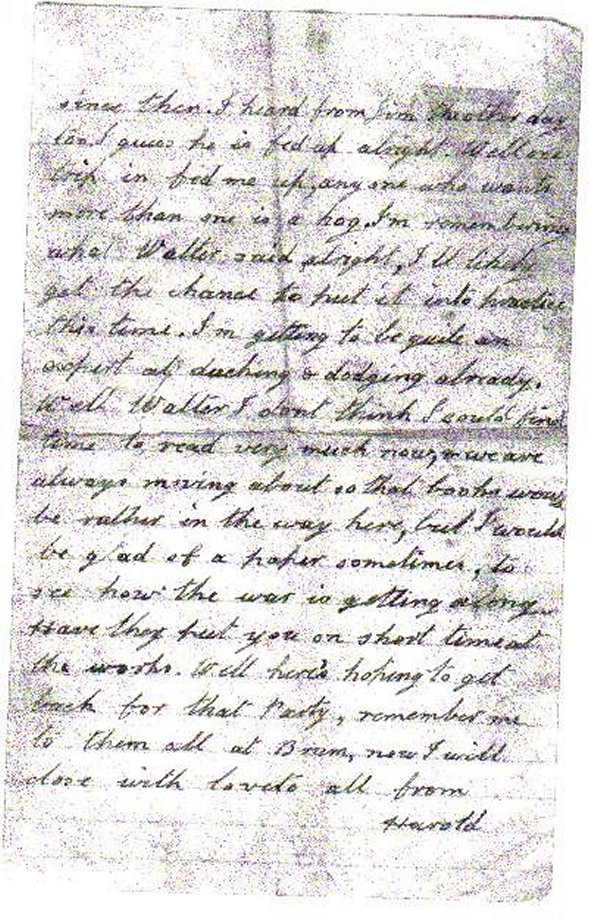 since then. I heard from Jim the other day
too. I guess he is fed up alright. Well one
trip in fed me up, any one who wants
more than one is a hog. I'm remembering
what Walter said alright, I'll likely
get the chance to put it into practice
this time. I'm getting to be quite an
expert at ducking & dodging already.
Well Walter I dont think I could find
time to read very much now, we are
always moving about so that books would
be rather in the way here, but I would
be glad of a paper sometimes, to
see how the war is getting along.
Have they put you on short time at
the works. Well here's hoping to get
back for that Party, remember me
to them all at Bram, now I will
close with love to all from
Harold